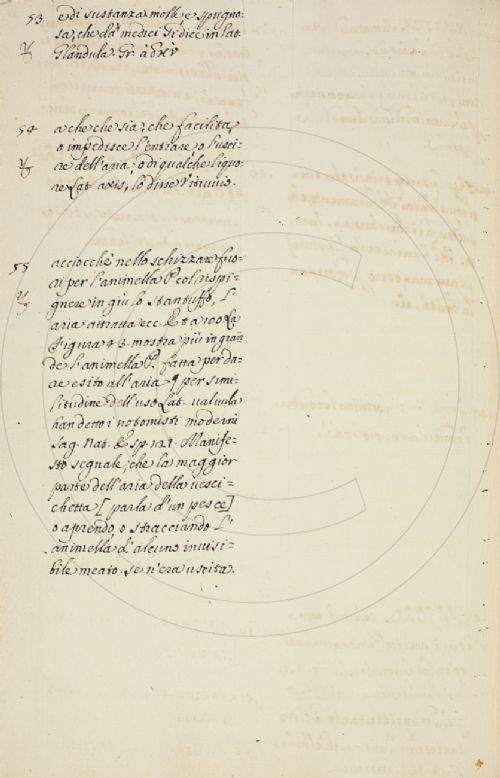 53 e di sustanza molle e spugno-
sa, che da' medici si dice in lat.
Glandula. Gr. ἀδὴν
54 a che che sia, che facilita,
o impedisce l'entrare, o l'usci-
re dell'aria, o di qualche liquo-
re Lat. axis, lo disse Vitruvio.
55 acciocchè nello schizzare fuo-
ri per l'animella P col rispi-
gnere in giù lo stantuffo, l'
aria attratta ecc. E t a 100 La
Figura 43. mostra più in gran
de l'animella P. fatta per da-
re esito all'aria ¶ per simi-
litudine dell'uso Lat. valvula
han detto i notomisti moderni
Sag. nat. Esp. 121. Manife-
sto segnale, che la maggior
parte dell'aria della vesci-
chetta [parla d'un pesce]
o aprendo, o stracciando l'
animella d'alcuno invisi-
bile meato. se n'era uscita.